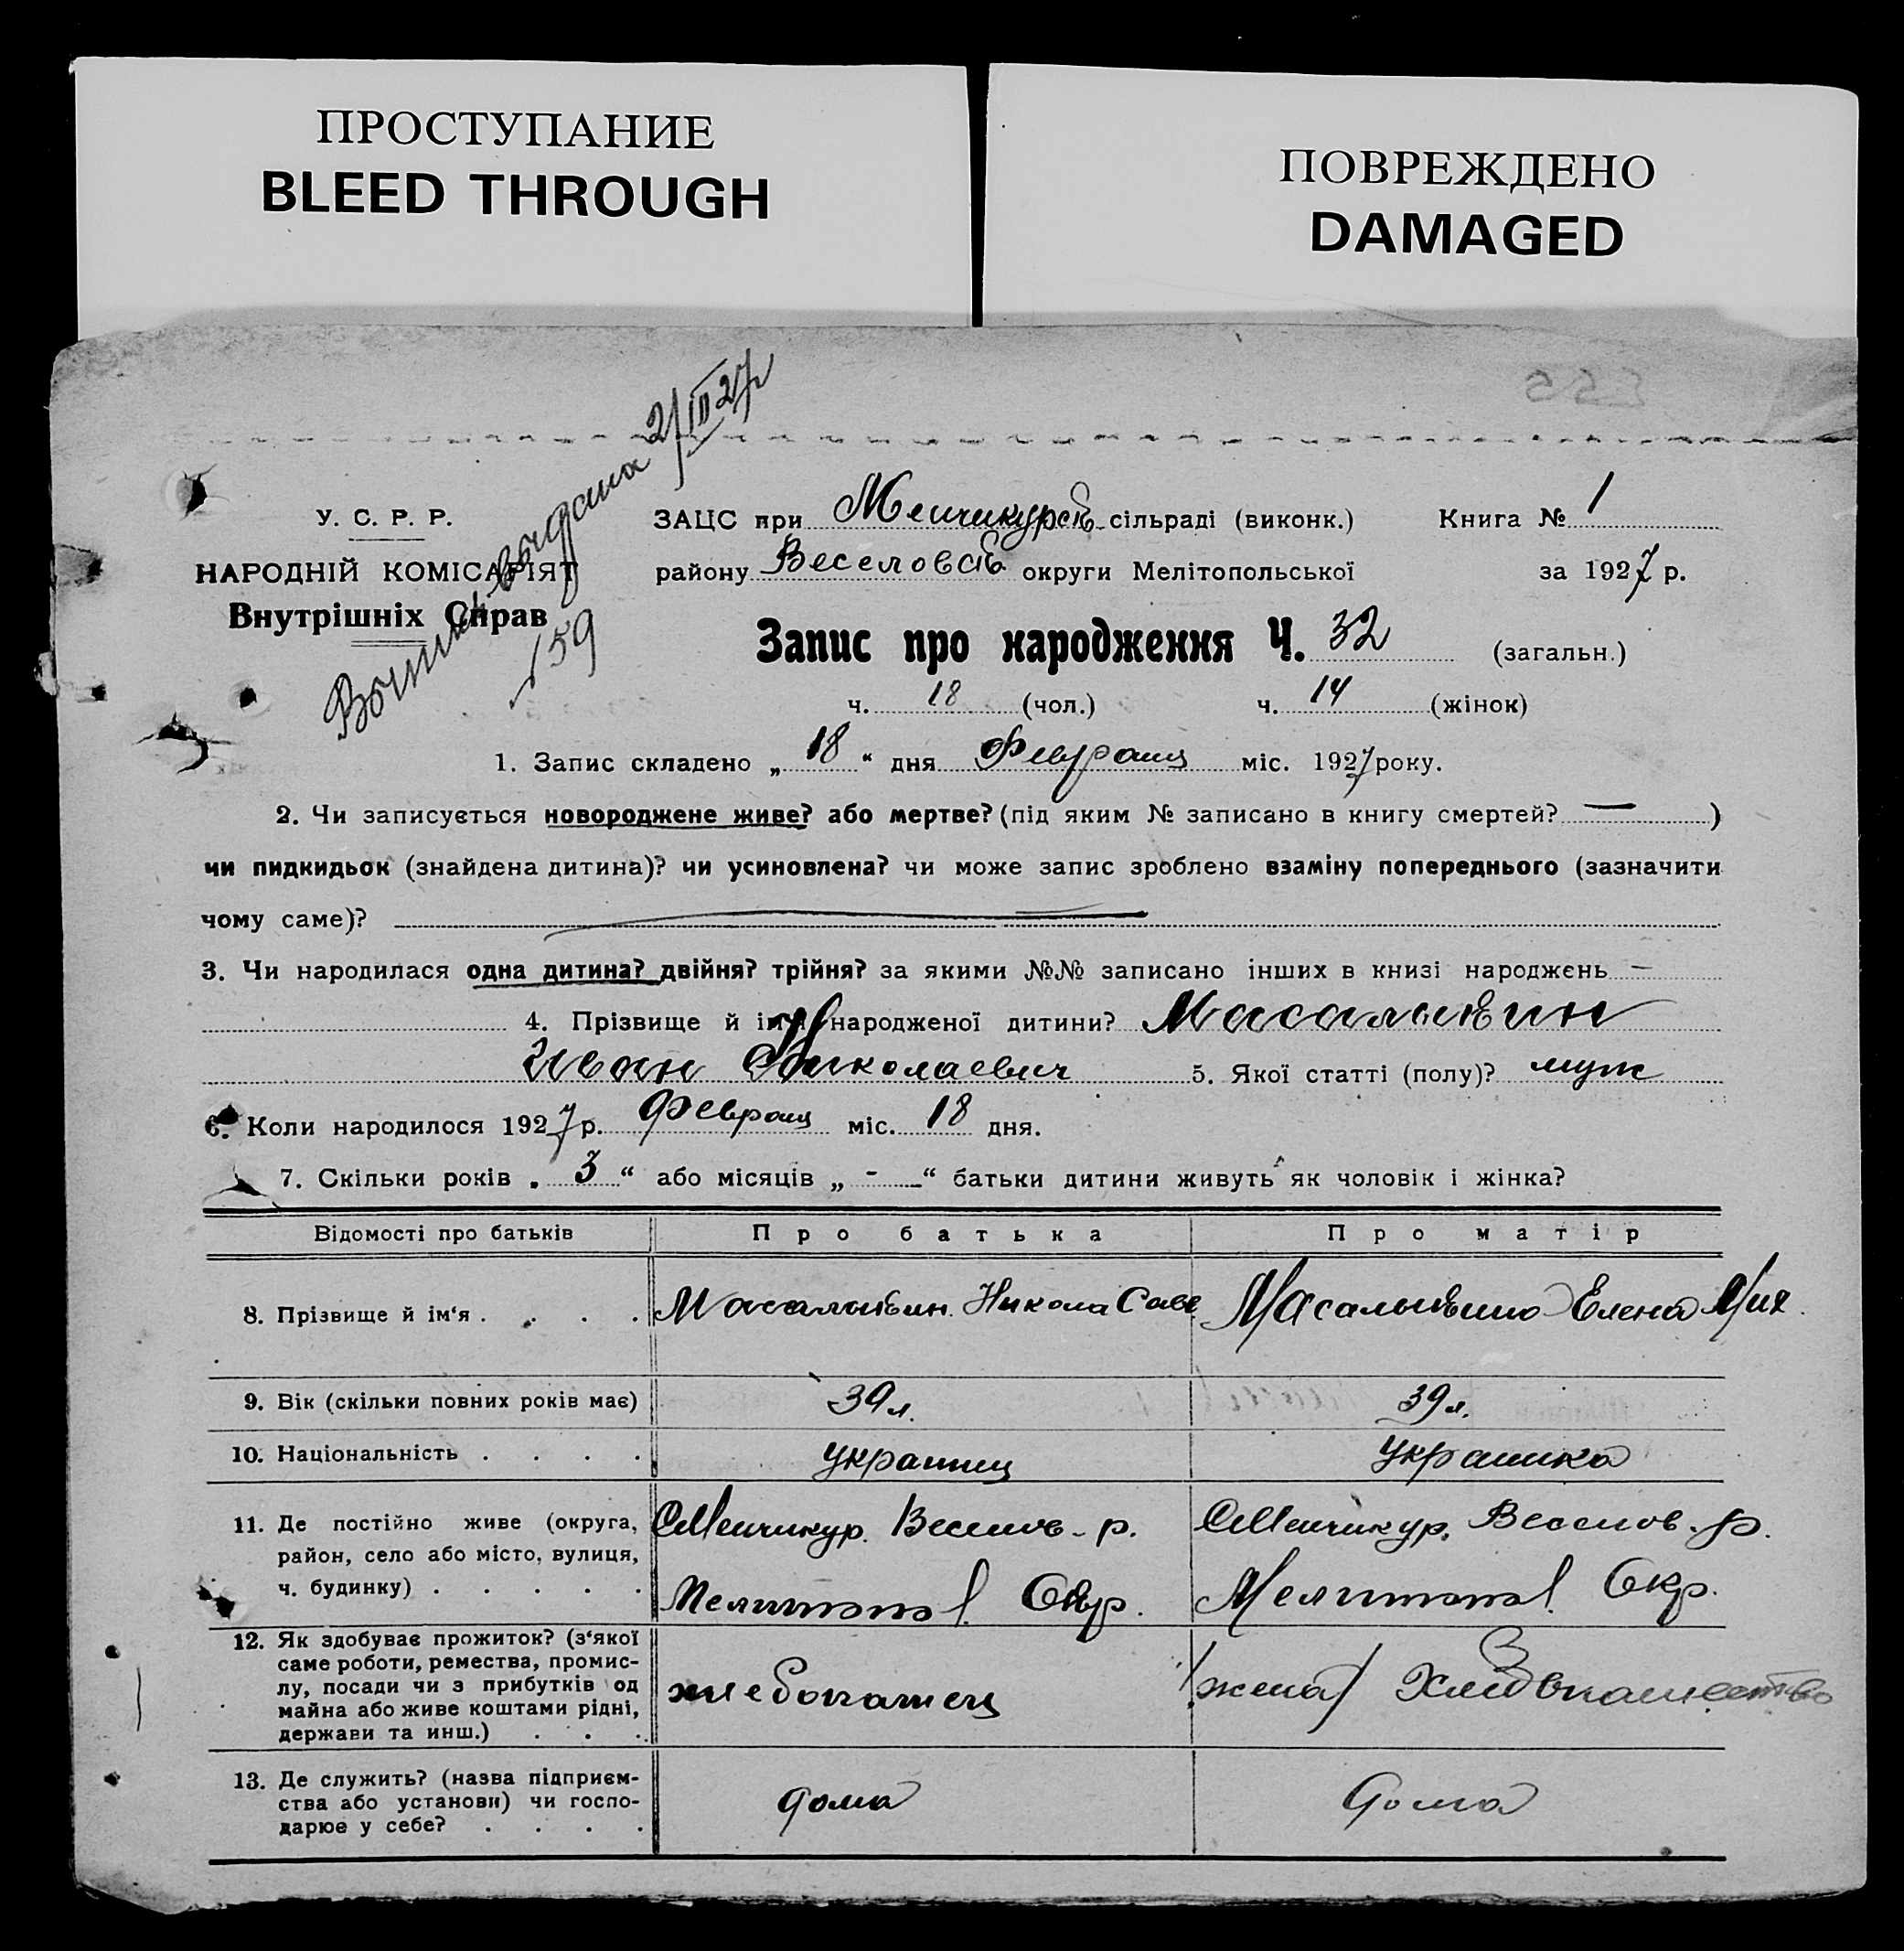 ПРОСТУПАНИЕ
BLEED THROUGH
ПОВРЕЖДЕНО
DAMAGED
выдана 2/III 27
№ 159
У. С. Р. Р.
НАРОДНІЙ КОМІСАРІЯТ
Внутрішніх Справ
ЗАЦС при Менчикурск сільраді (виконк.) Книга № 1
району Веселовск округи Мелітопольської за 1927 р.
Запис про народження Ч. 32 (загальн.)
ч. 18 (чол.) ч. 14 (жінок)
1. Запис складено „ 18 “ дня Февраля міс. 1927 року.
2. Чи записується новороджене живе? або мертве? (під яким № записано в книгу смертей? — )
чи пидкидьок (знайдена дитина)? чи усиновлена? чи може запис зроблено взаміну попереднього (зазначити
чому саме)?
3. Чи народилася одна дитина? двійня? трійня? за якими №№ записано інших в книзі народжень —
4. Прізвище й ім'я народженої дитини? Масалыкин
Иван Николаевич 5. Якої статті (полу)? муж
6. Коли народилося 1927 р. Февраля міс. 18 дня.
7. Скільки років „ 3 “ або місяців „ - “ батьки дитини живуть як чоловік і жінка?
Відомості про батьків Про батька Про матір
8. Прізвище й ім'я . . . . Масалыкин Никола Савв Масалыкина Елена Мих.
9. Вік (скільки повних років має) 39 л. 39 л.
10. Національність . . . . украинец украинка
11. Де постійно живе (округа,
район, село або місто, вулиця,
ч. будинку) . . . . .
с Менчикур. Веселов. р.
Мелитопол. Окр.
с Менчикур. Веселов. р.
Мелитопол. Окр.
12. Як здобуває прожиток? (з'якої
саме роботи, ремества, промис-
лу, посади чи з прибутків од
майна або живе коштами рідні,
держави та инш.) . . .
хлебопашец
/жена/ Хлебопашество
13. Де служить? (назва підприєм-
ства або установи) чи госпо-
дарює у себе? . . . .
дома
дома